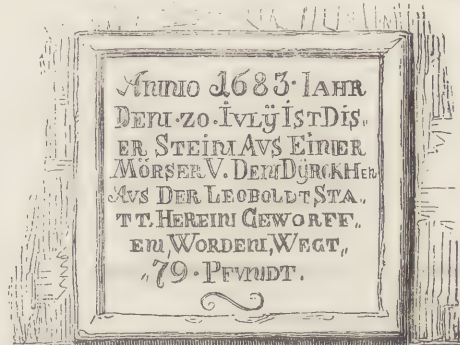 ANNO 1683 · IAHR
DEN · 20 · IVLÿ IST DIS„
ER STEIN AVS EINER
MÖRSER V. DEN DÿRCKHEN
AVS DER LEOBOLDT STA„
TT, HEREIN GEWORFF„
EN, WORDEN, WEGT„
„79 · PFVNDT.